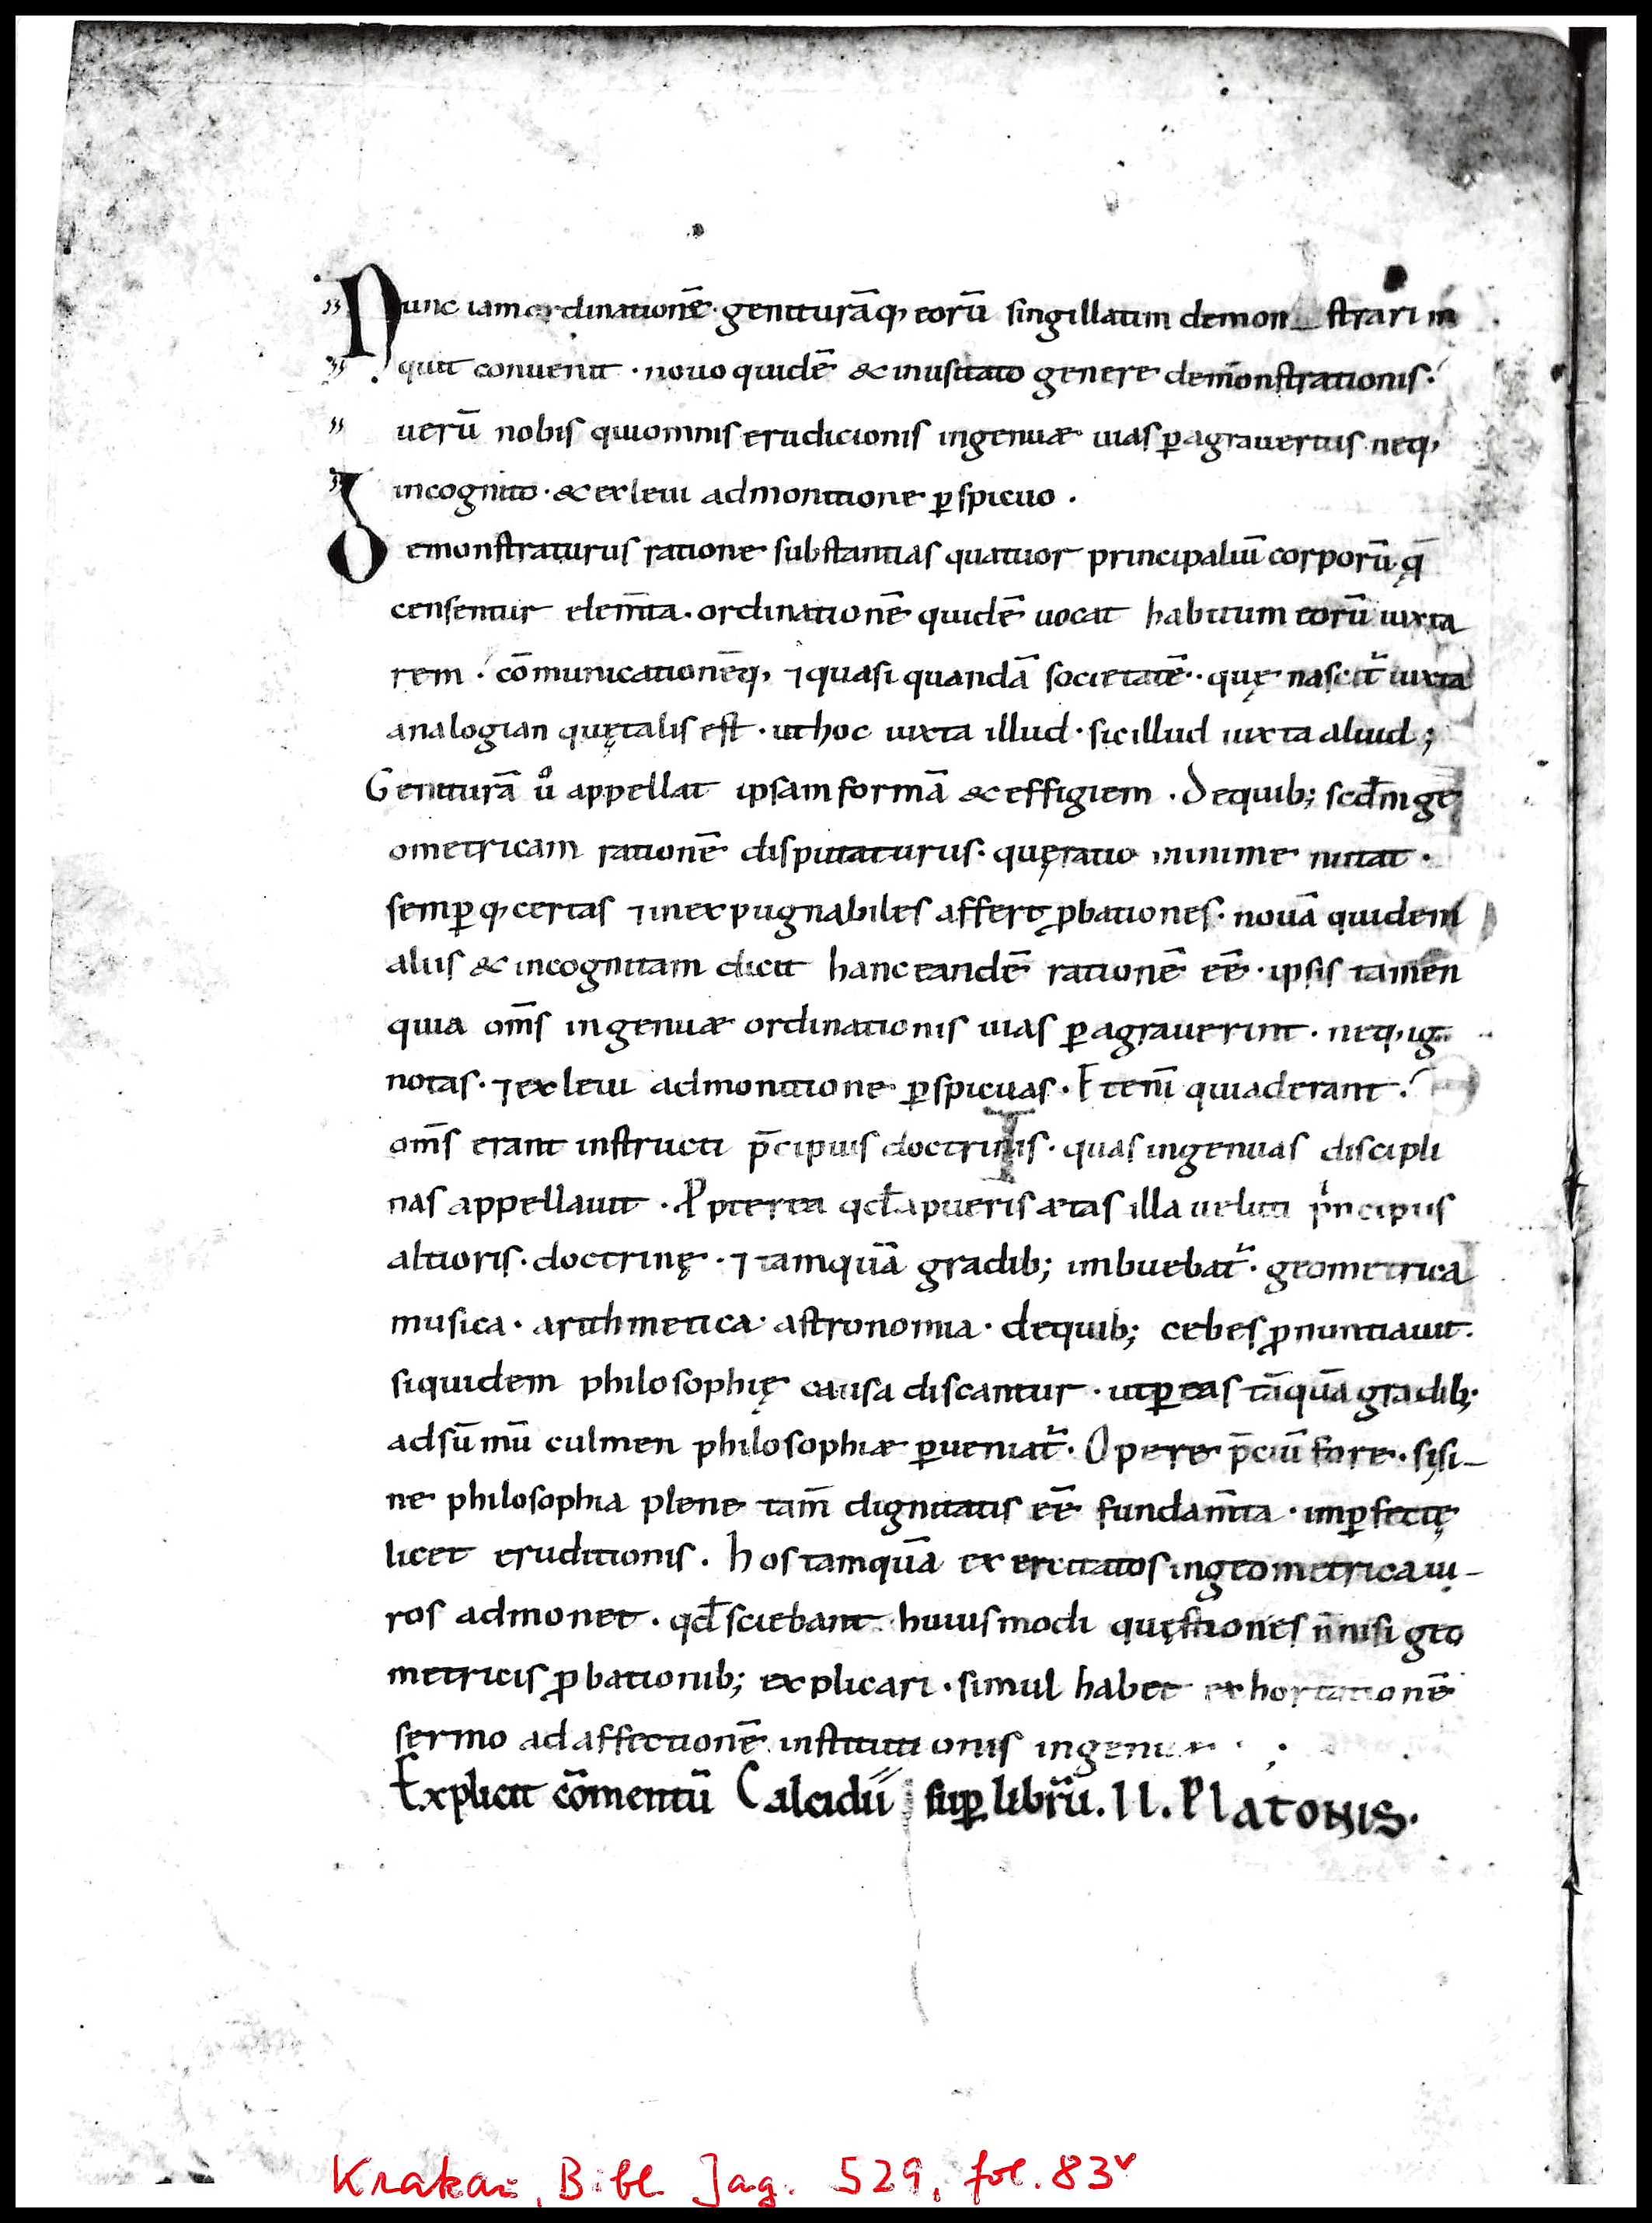 " Nunc iam ordinationē· genituraq̄, eorū singillatim demon_strari in
" quit conuenit · nouo quidē & inusitato genere demōnstrationis·
" uerū nobis quiomnis erudicionis ingenuæ uias ꝑagrauertuis neq,
" incognito · & exleui admonitione ꝑspicuo .
Demonstraturus ratione substantias quatuor principaliū corporū· q̄
censentur elem̄ta · ordinationē quidē uocat habitum eorū iuxta
rem · cōmunicationēq, ⁊ quasi quandā societatē · quę nascit᷑ iuxta
analogian quętalis est · ut hoc iuxta illud · sic illud iuxta aliud ;
Geniturā ů appellat ipsam formā & effigiem . Dequib; scd̄m ge
ometricam rationē disputaturus · quęratio minime nutat ·
semꝑ q, certas ⁊ inexpugnabiles affert ꝓbationes · nouā quidem
aliis & incognitam dicit hanc eandē rationē eē · ipsis tamen
quia om̄s ingenuæ ordinationis uias ꝑagrauerint · neq, ig
notas · ⁊ exleui admonitione ꝑspicuas · Etenī quiaderant ·
om̄s erant instructi p̄cipuis doctrinis · quas ingenuas discipli
nas appellauit · Ꝓpterea qd̄ apueris ætas illa ueluti pⁱncipiis
altioris · doctrinę · ⁊ tamquā gradib; imbuebat᷑ · geometrica
musica · arithmetica · astronomia · dequib; cebes ꝓnuntiauit ·
siquidem philosophię causa discantur · utꝑ eas tāquā gradib;
adsūmū culmen philosophiæ ꝑueniat᷑ · Opere p̄ciū fore · sisi-
ne philosophia plene tam̄ dignitatis eē fundam̄ta · imꝑfectę
licet eruditionis . hos tamquā exercitatos ingeometrica ui-
ros admonet · qd̄ sciebant · huiusmodi quęstiones n̄ nisi geo
metricis ꝓbationib; explicari · simul habet exhortationē
sermo adaffectionē institutionis ingenuæ · ;
Explicit cōmentū Calcidii suꝑ librū . II . Platonis ·
Krakau, Bibl. Jag. 529, fol. 83ᵛ